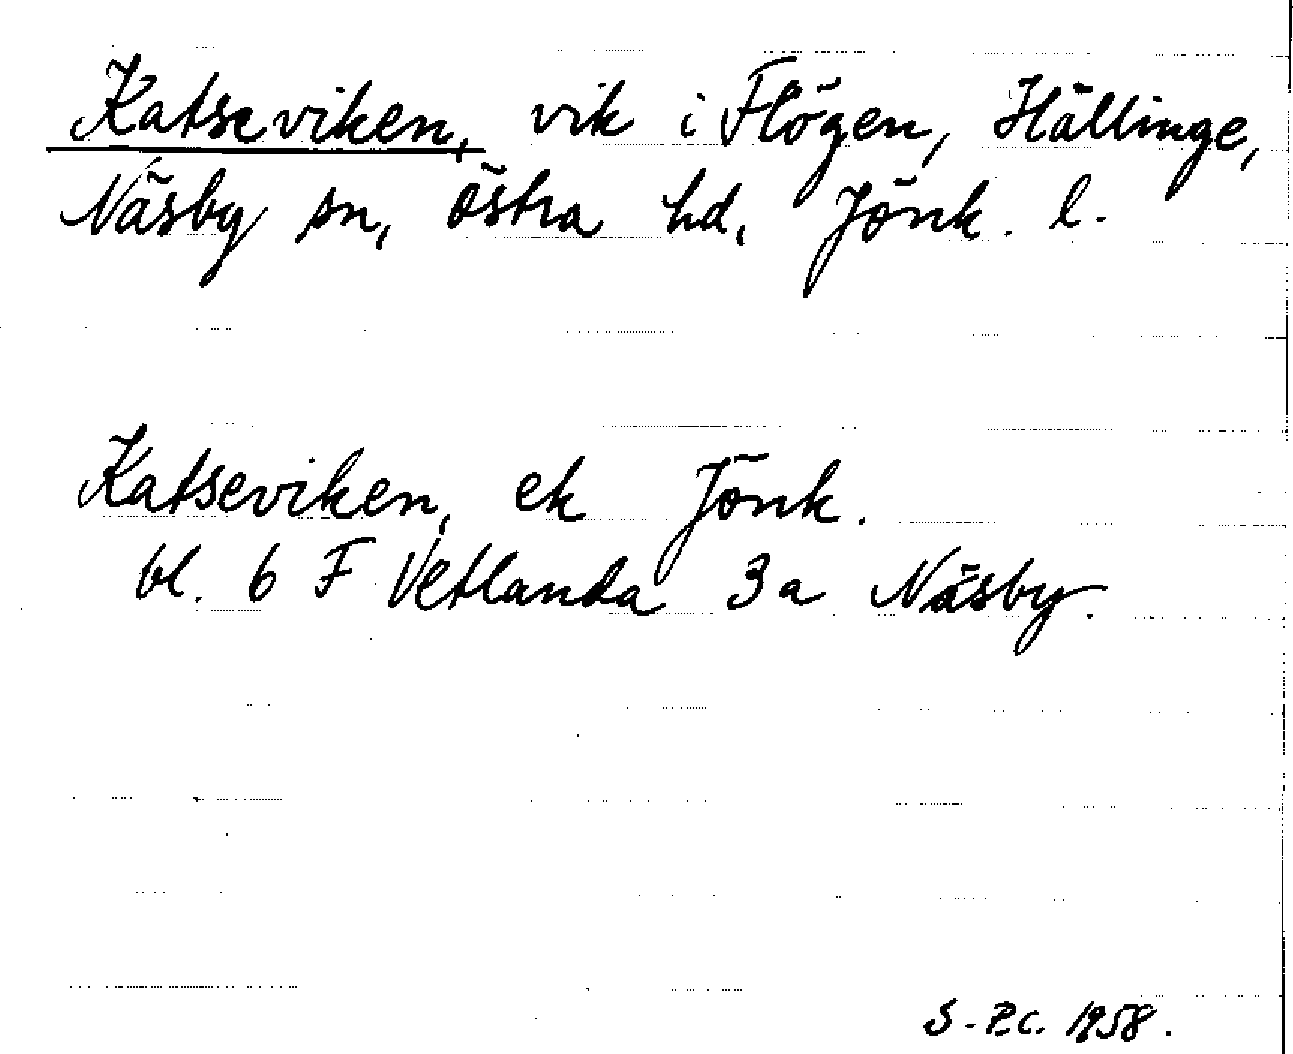 Katseviken, vik i Flögen, Hällinge,
Näsby sn, östra hd, Jönk. l.
Katseviken, ek Jönk.
bl. 6 F Vetlanda 3a Näsby.
S-P.C. 1958.